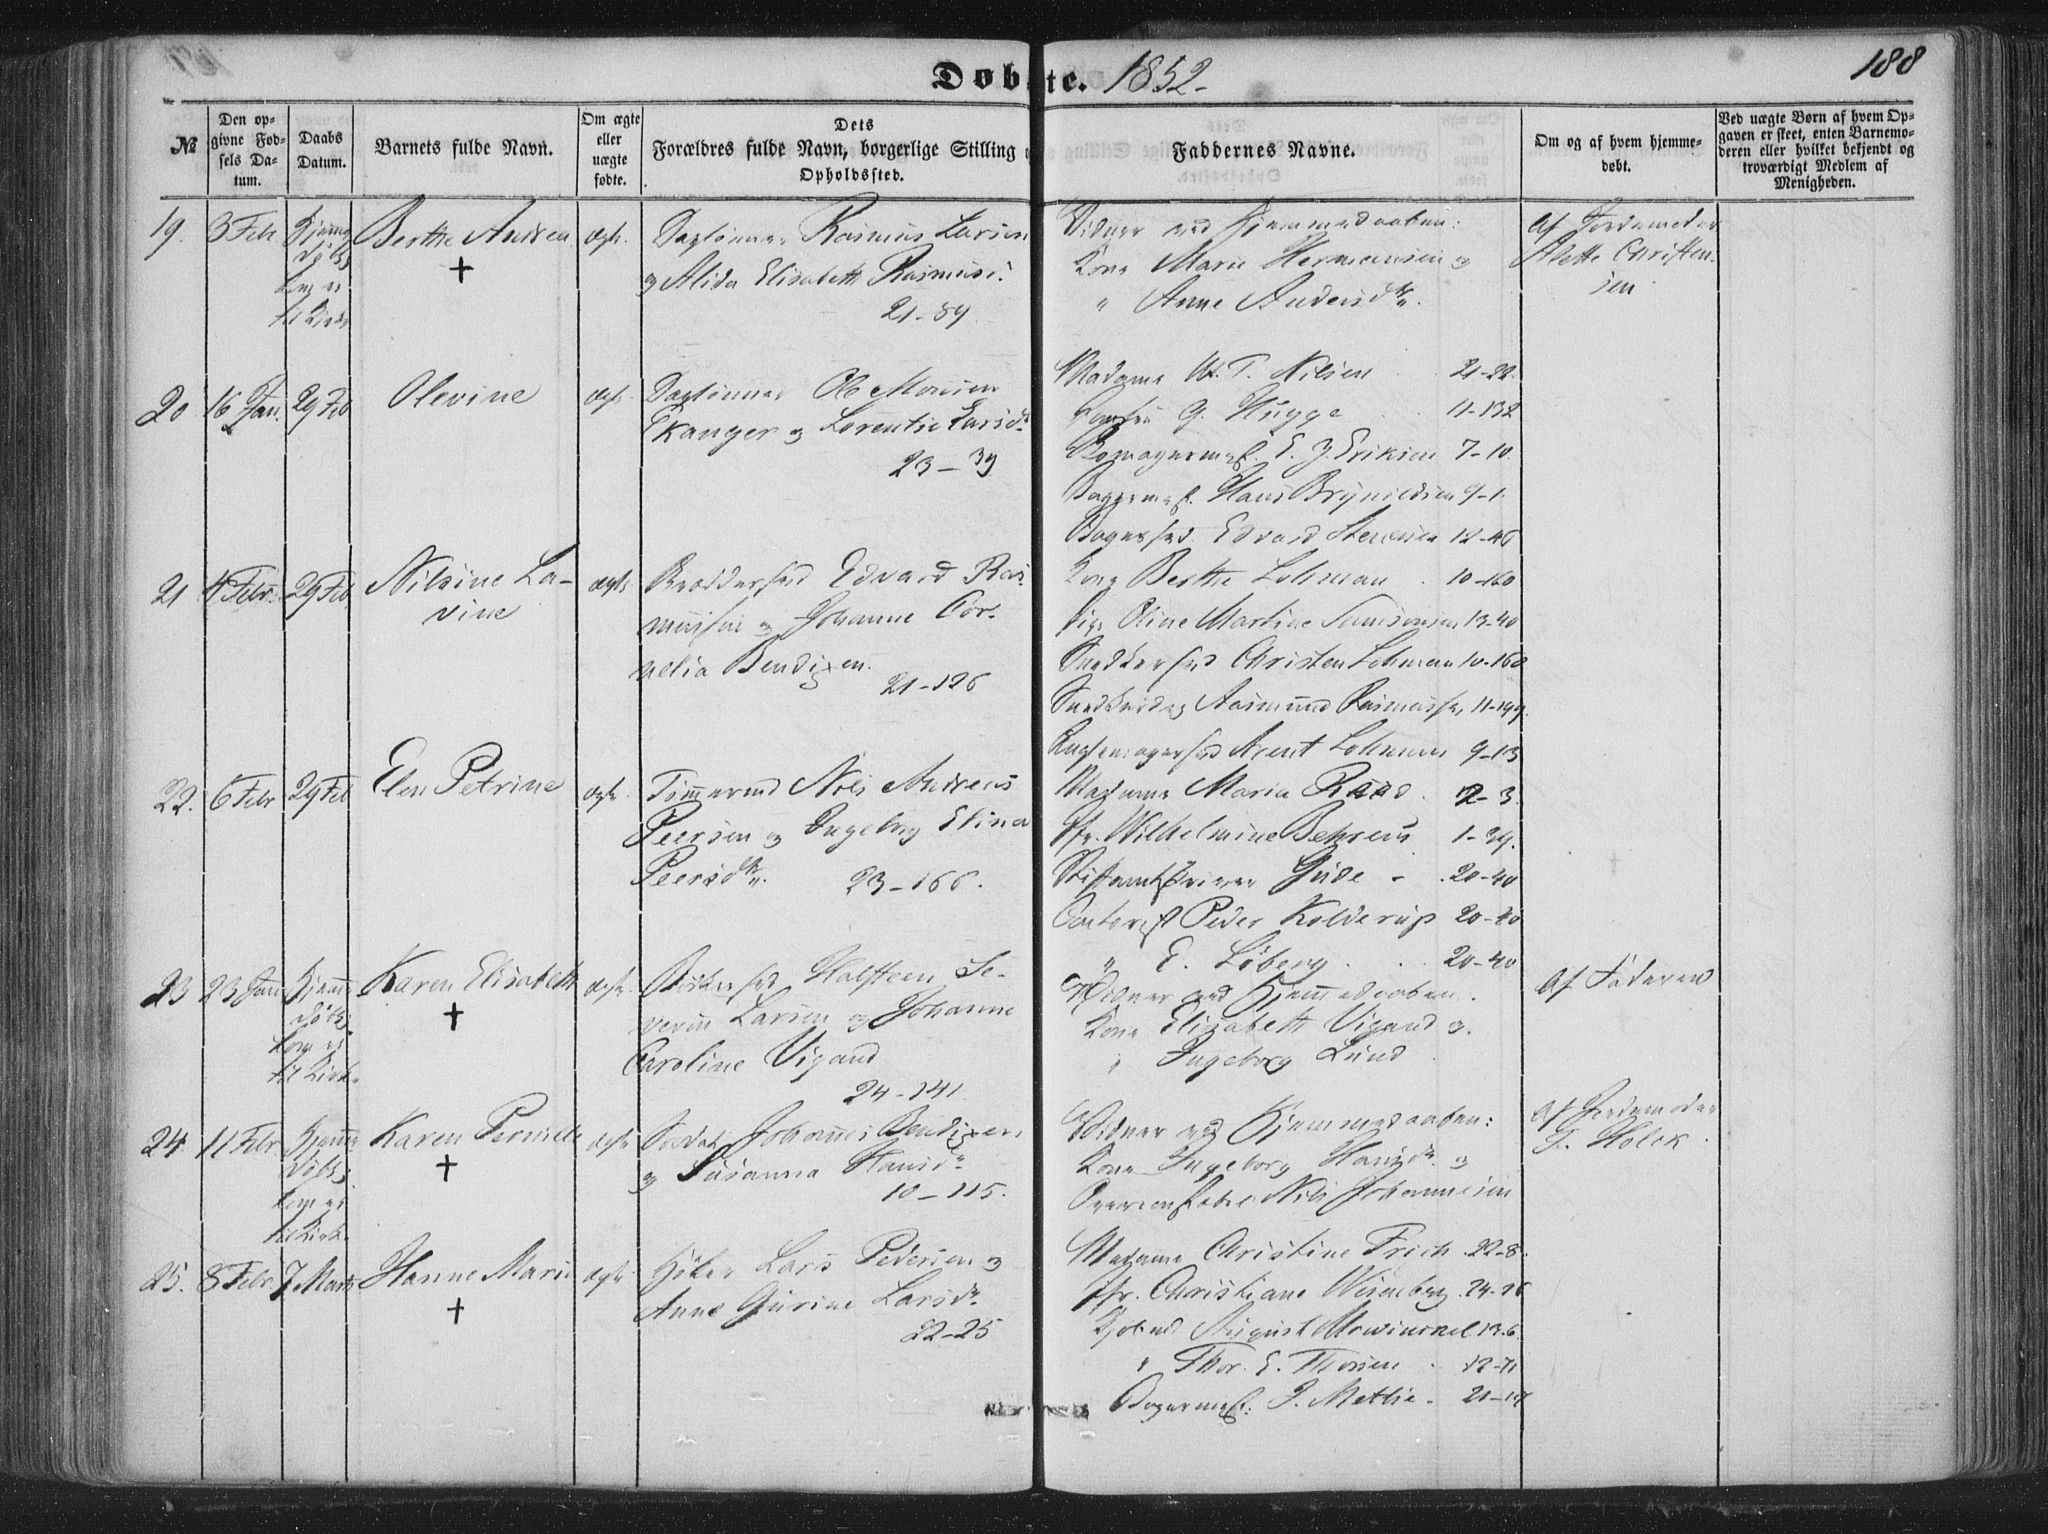 Døbte. 1852.
188
№
Den opgivne Fødsels Datum.
Daabs Datum.
Barnets fulde Navn.
Om ægte eller uægte fødte.
Dets Forældres fulde Navn, borgerlige Stilling Opholdssted.
Faddernes Navne.
Om og af hvem hjemmedøbt.
Ved uægte Børn af hvem Opgaven er skeet, enten Barnemoderen eller hvilket bekjendt og troværdigt Medlem af Menigheden.
19. 3 Feb Hjemmedøbt Berthe Andrea ægte Daglønner Rasmus Larsen
kom ei til Kirke
†
og Alida Elisabeth Rasmusd.
21-89
Vidner ved Hjemmedaaben:
Kone Marie Hermansen og
" Anne Andersdtr.
af Jordemoder
Alette Christen-
sen
20 16 Jan. 29 Feb Olevine ægte Daglønner Ole Monsen
Ekanger og Lorentse Larsdr
23-39
Madame W. T. Nilsen 21-22.
Jomfru G. Hugge 11-132
Skomagermest. E. J. Eriksen 7-10.
Bagermest. Hans Brynildsen 9-1.
Bagersvd. Edvard Stenersen 12-46
21 4 Febr. 29 Feb Nilsine La-
vine
ægte Edvard Ras-
mussen og Johanne Cor-
nelia Bendixen.
21-126
Kone Berthe Lohman 10-160
Pige Oline Martine Samsonsen 13-40
Snedkersvd Christen Lohman 10-160
Aasmund Rasmussen 11-199.
Arent Lohman 9-13
22. 6 Febr 29 Feb Elen Petrine ægte Tømmermd Nils Andreas
Peersen og Ingeborg Stina
Peersdtr.
23-166.
Madame Maria Raad 2-3.
Jfr. Wilhelmine Behrens 1-39.
Stiftamtskriver Gude - 20-40
Contorist Peder Kolderup 20-40
" E. Løberg 20-40
23 23 Jan Hjemmedøbt Karen Elisabeth ægte
kom ei til Kirke
†
Halfsteen Se-
verin Larsen og Johanne
Caroline Vigand
24-141
Vidner ved Hjemmedaaben.
Kone Elisabeth Vigand og
" Ingeborg Lund
af Faderen
24 11 Febr Hjemmedøbt Karen Pernille ægte Soldat Johannes Bendixen
kom ei til Kirke
†
og Susanna Hansdr
10-115.
Vidner ved Hjemmedaaben:
Kone Ingeborg Hansdr. og
Nils Johannesen
af Jordemoder
F. Holck.
25. 8 Febr. 7 Marts Hanne Marie ægte Høker Lars Pedersen og
†
Anne Gurine Larsdr.
22-25
Madame Christine Frich 22-8.
Jfr. Christiane Wisneberg 24-26
Kjøbmd August Mowinckel 13-6.
" Thor. E. Thorsen 12-71
Bagermest. J. Methie. 21-14